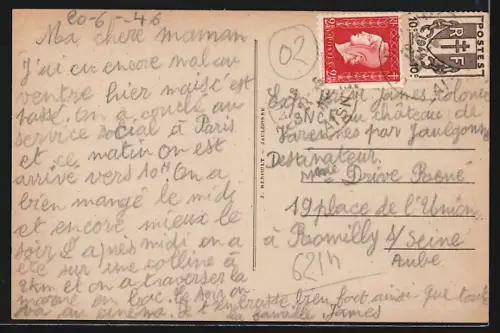 20-6-46
Ma chere maman
J'ai eu encore mal au
ventre hier mais c'est
passé. On a couché au
service social à Paris
et ce matin on est
arrivé vers 10H On a
bien mangé le midi
et encore mieux le
soir L'après midi on a
été sur une colline à
2km et on a traversé la
marne en bac. le soir on
va au cinéma. Je t'embrasse bien fort ainsi que toute
la famille James
02
10c
POSTES
RF
Exp. James Colonie
du château de
Varennes par Jaulgonne
Destinateur
Mme Drive René
19 place de l'Union
à Romilly s/ Seine
Aube
6214
J. RENOULT - JAULGONNE